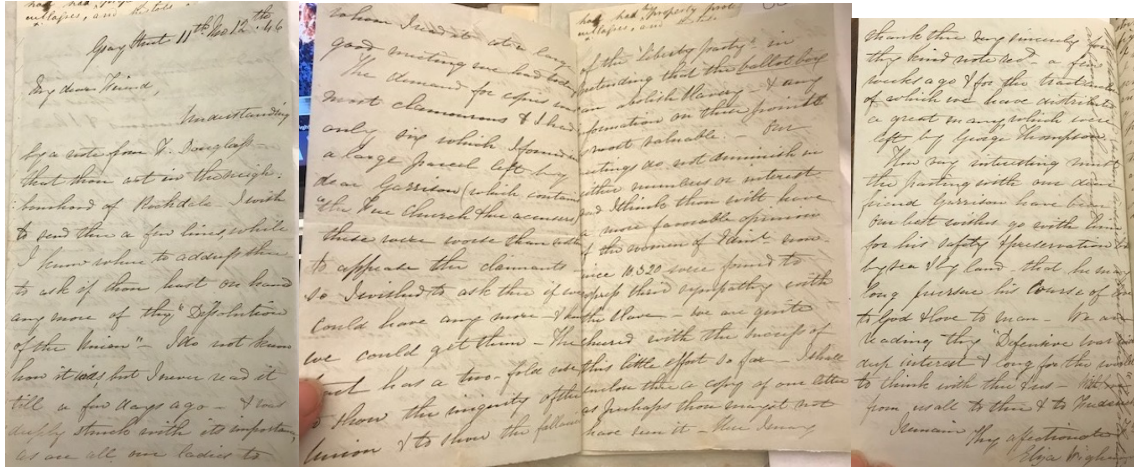 Gray Street 11th Mo 12th. 46
My dear Friend,
Understanding
by a note from F. Douglass—
that thou art in the neigh-
bourhood of Rochdale I wish
to send thee a few lines, while
I know where to address thee
to ask if thou hast on hand
any more of thy "Dissolution
of the Union"— I do not know
how it is but I never read it
till a few days ago— & was
deeply struck with its importance,
as are all our ladies to
whom I read it at a very
good meeting we had
The demand for copies was
most clamourous & I had
only six which I found in
a large parcel left by
dear Garrison (which contain
"the Free Church & her accusers,
these were worse than
to appease the claimants
so I wished to ask thee if we
could have any more - &
we could get them - The
tract has a two-fold
to show the iniquity of the
Union & to show the fallacy
of the "liberty party" in
contending that the ballot box
can abolish Slavery - & any
information on these points
most valuable. - Our
meetings do not diminish in
either numbers or interest
and I think thou wilt have
a more favorable opinion
of the women of
since 10320 were found to
express their sympathy with
the Slave - We are quite
cheered with the success of
this little effort so far - I shall
enclose thee a copy of our
as perhaps thou mayest not
have seen it - Here I may
thank thee very sincerely for
thy kind note recd. a few
weeks ago & for the tracts
of which we have distributed
a great many which were
left by George Thompson
How very interesting must
the parting with our dear
friend Garrison have been
Our best wishes go with him
for his safety & preservation
by sea & by land - that he may
long pursue his Course of love
to God & love to man - We are
reading thy "Defensive War
deep interest & long for the world
to think with thee &c -
from us all to thee & to Frederick
I remain thy affectionate
Eliza